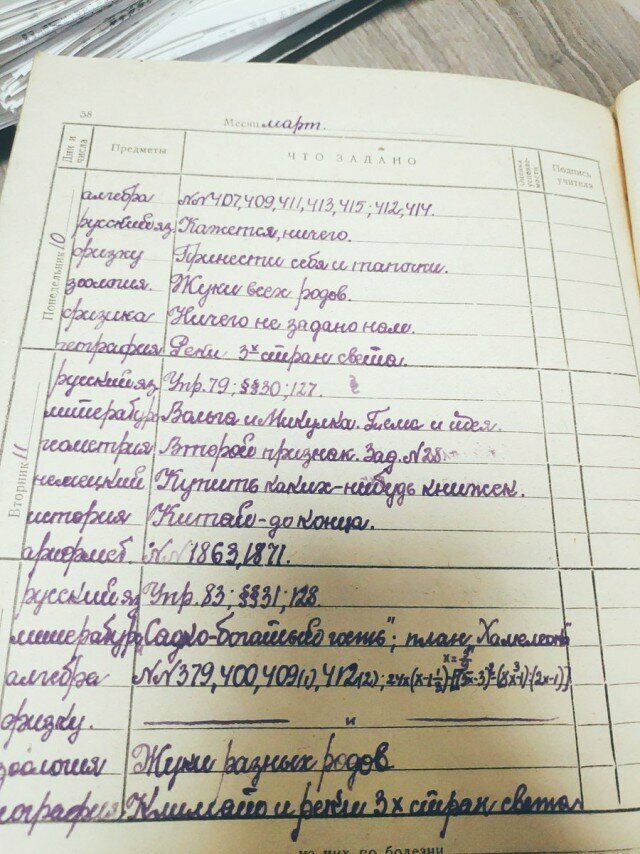 58
Месяц март.
Дни и числа Предметы ЧТО ЗАДАНО Оценка успеваемости Подпись учителя
Понедельник 10
алгебра №№407,409,411,413,415;412,414.
русский яз Кажется, ничего.
физку Принести себя и тапочки.
зоология. Жуки всех родов.
физика Ничего не задано нам.
география Реки 3х стран света.
Вторник 11
русский яз. Упр. 79; §§30; 127.
литература Вольга и Микулка. Тема и идея.
геометрия Второй признак. Зад. №28
немецкий Купить каких-нибудь книжек.
история Китай-до конца.
арифмет. №№1863,1871.
русский яз Упр. 83; §§31; 128.
литература „Садко-богатый гость"; план „Хамелеон"
алгебра №№379,400,409(1),412(2);
физку. и
зоология Жуки разных родов
география Климат и реки 3х стран света
по болезни